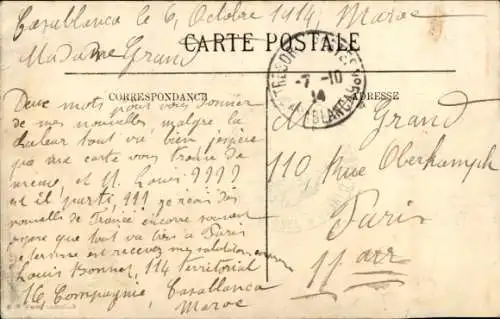 Casablanca le 6, Octobre 1914, Maroc
Madame Grand
CARTE POSTALE
CORRESPONDANCE
ADRESSE
TRESOR
7 -10
14
BLANCA
Deux mots pour vous donner
de mes nouvelles, malgré la
chaleur tout va bien, j'espère
que ma carte vous trouve de
même, et M. Louis ????
est il parti, ??? je reçois des
nouvelles de France encore souvent
j'espère que tout va bien à Paris
je termine en recevez mes salutations
Louis Bonnet, 114 territorial
16 Compagnie, Casablanca
Maroc
M. Grand
110, Rue Oberkampf
Paris
11 arr